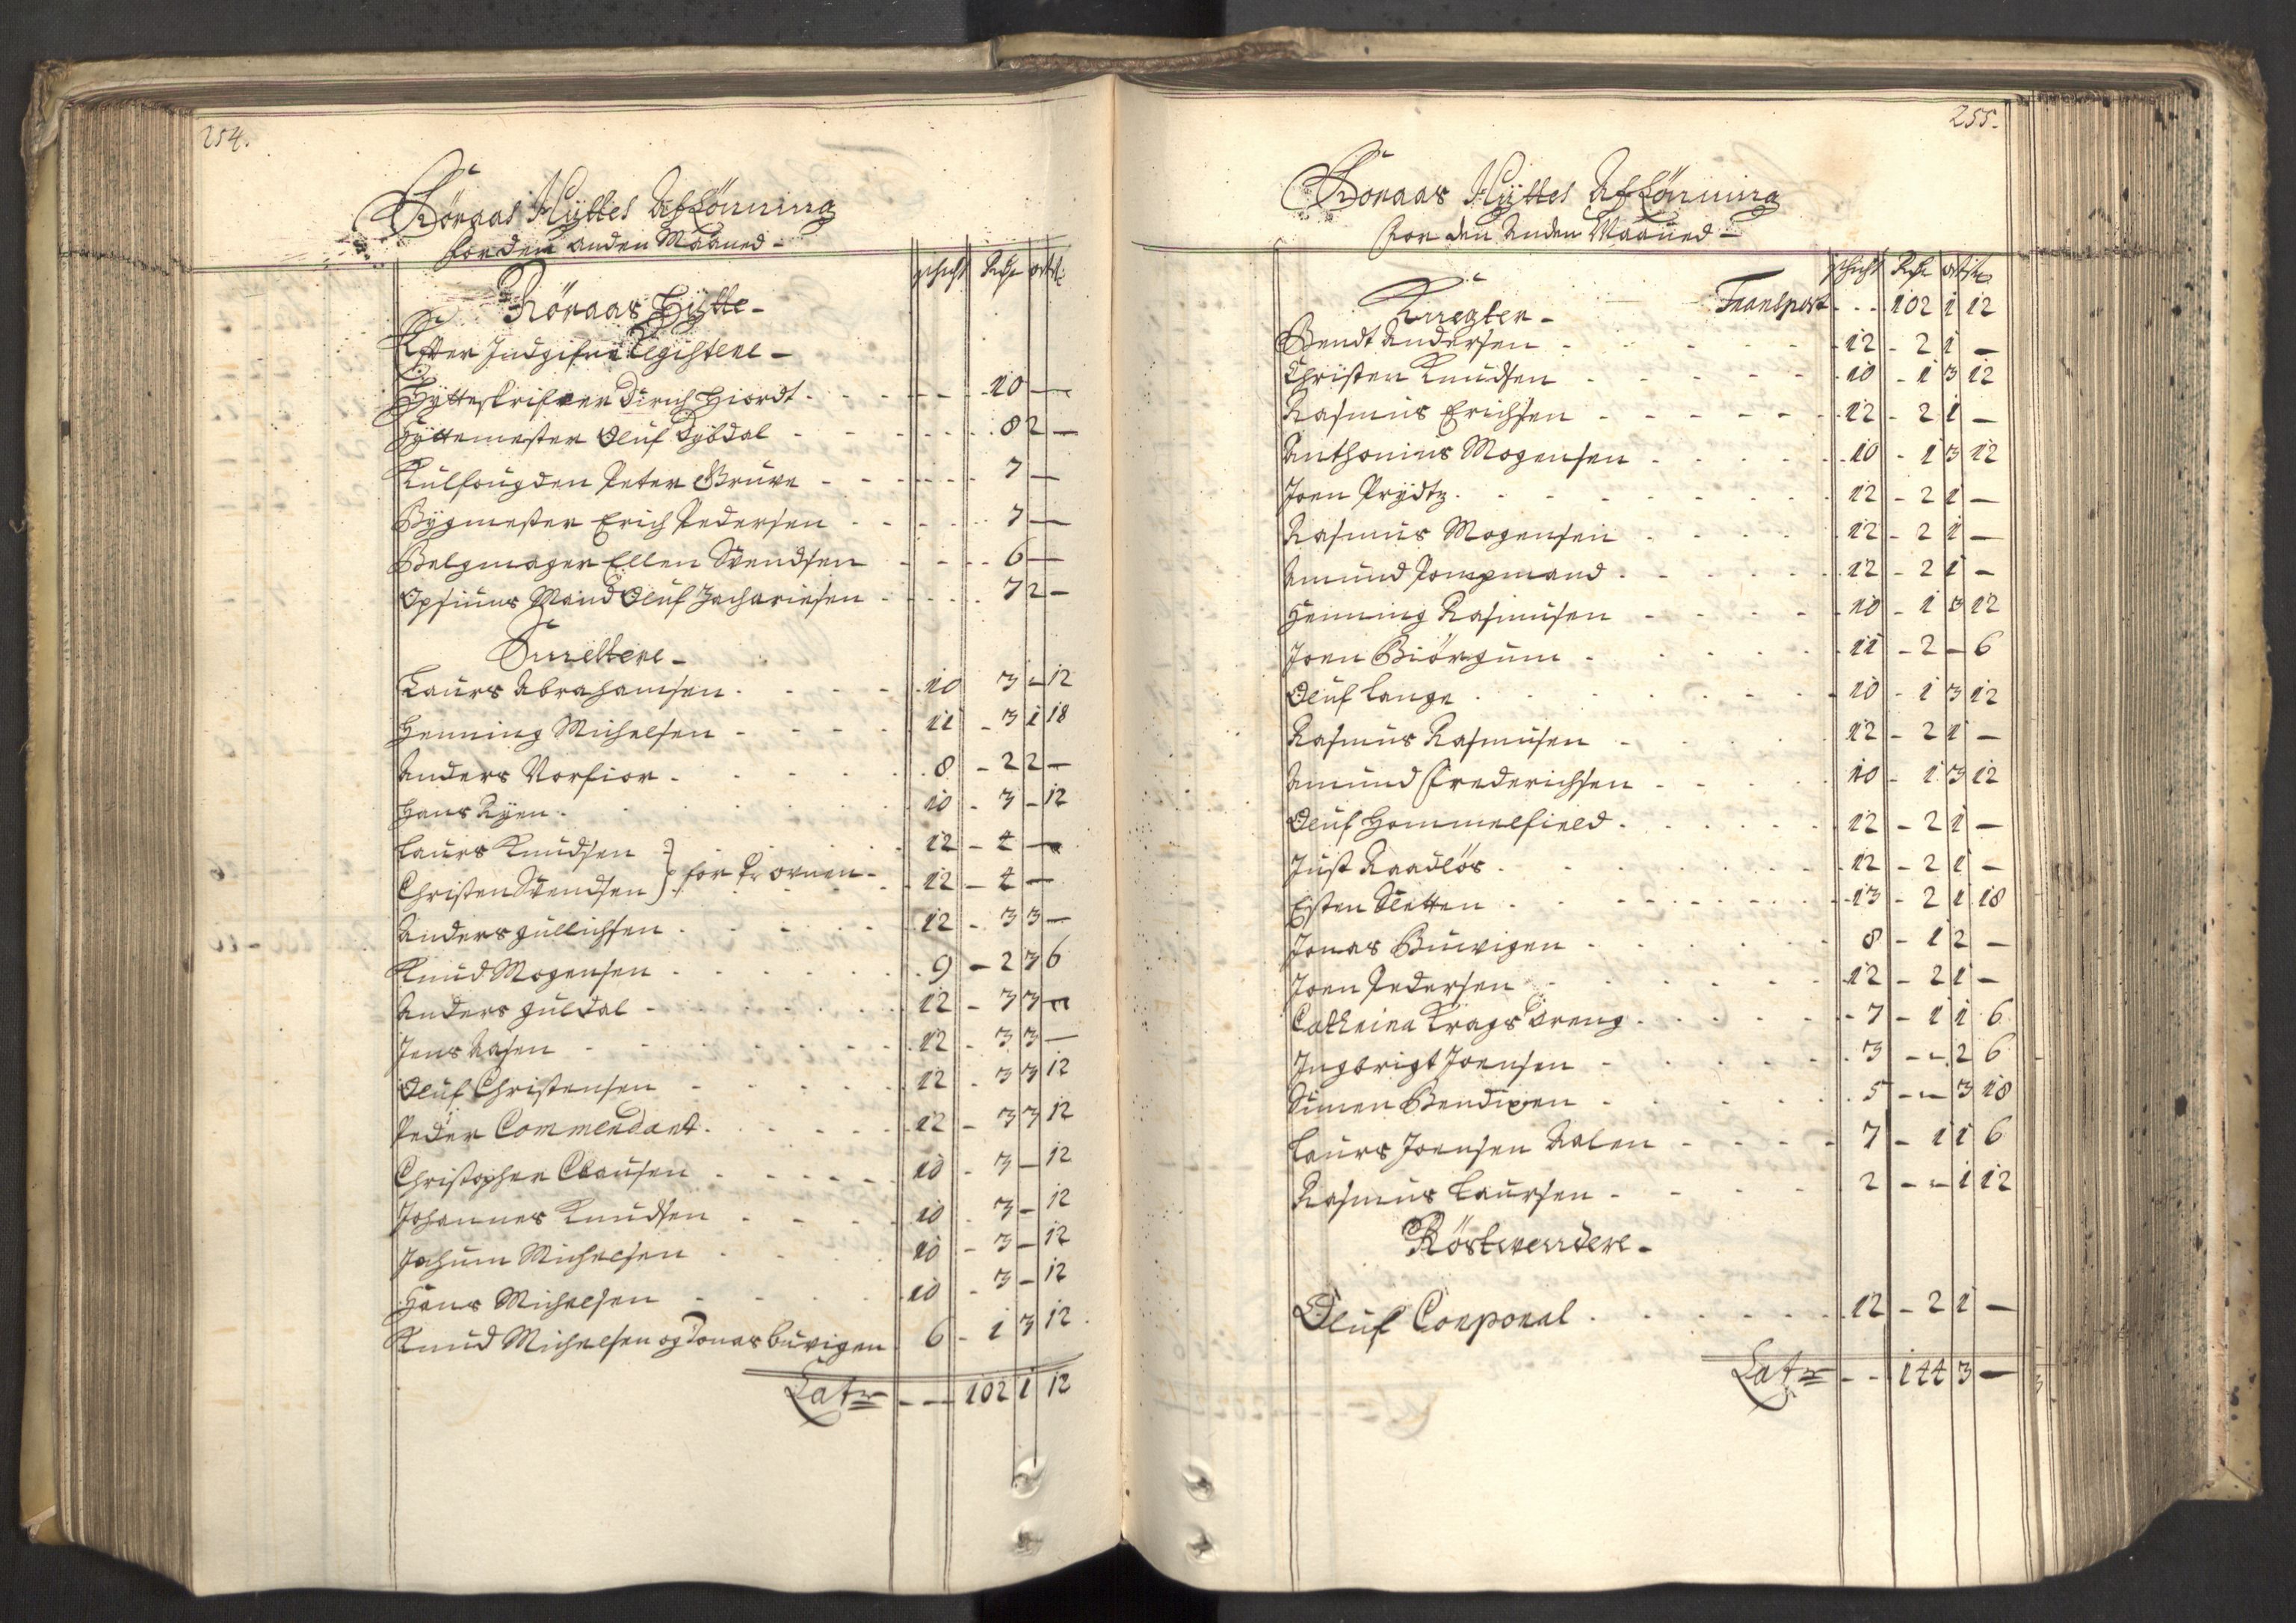 254.
Röraas Hÿttes Aflönning
for den anden Maaned -
schicht Rdr ort s:
Röraas Hÿtte -
Efter Indgifne Registere -
Hytteskrifver Dirich Hiordt - - - 10 -
Hÿttemester Oluf Dybdal - - - 8 2 -
Kulfougden Peter Gruve - - - 7 -
Bÿgmester Erich Pedersen - - - 7 -
Belgmager Ellen Svendsen - - - 6 -
Opsiuns Mand Oluf Zachariesen - - - 7 2 -
Smeltere -
Laurs Abrahamsen - - - 10 3 - 12
Henning Michelsen - - - 11 - 3 1 18
Anders Norfior - - - 8 - 2 2 -
Hans Ryen - - - 10 - 3 - 12
Laurs Knudsen } 12 - 4 -
Christen Svendsen } for Prøvuen - 12 - 4 -
Anders Gullichsen - - - 12 - 3 3 -
Knud Mogensen - - - 9 - 2 3 6
Anders Guldal - - - 12 - 3 3 -
Jens Aasen - - - 12 - 3 3 -
Oluf Christensen - - - 12 - 3 3 12
Peder Commendant - - - 12 - 3 3 12
Christopher Clausen - - - 10 - 3 - 12
Johannes Knudsen - - - 10 - 3 - 12
Jochum Michelsen - - - 10 - 3 - 12
Hans Michelsen - - - 10 - 3 - 12
Knud Michelsen og Jonas Buvigen 6 - 1 3 12
Lat - - 102 1 12
255.
Röraas Hÿttes Aflönning
for den Anden Maaned -
schicht Rdr ort s
Knegter - Transport - - 102 1 12
Bendt Andersen - - - 12 - 2 1 -
Christen Knudsen - - - 10 - 1 3 12
Rasmus Erichsen - - - 12 - 2 1 -
Anthonius Mogensen - - - 10 - 1 3 12
Joen Prÿdtz - - - 12 - 2 1 -
Rasmus Mogensen - - - 12 - 2 1 -
Amund Pompmand - - - 12 - 2 1 -
Henning Rasmusen - - - 10 - 1 3 12
Joen Biörgum - - - 11 - 2 - 6
Oluf Lange - - - 10 - 1 3 12
Rasmus Rasmusen - - - 12 - 2 1 -
Amund Frederichsen - - - 10 - 1 3 12
Oluf Hommelfield - - - 12 - 2 1 -
Just Raadlös - - - 12 - 2 1 -
Esten Sletten - - - 13 - 2 1 18
Jonas Buwigen - - - 8 - 1 2 -
Joen Pedersen - - - 12 - 2 1 -
Cathrina Krags Dreng - - - 7 - 1 1 6
Ingbrigt Joensen - - - 3 - - 2 6
Simen Bendixen - - - 5 - - 3 18
Laurs Joensen Aalen - - - 7 - 1 1 6
Rasmus Laursen - - - 2 - - 1 12
Röstvendere -
Oluf Corporal - - - 12 - 2 1 -
Lat - - 144 3 -